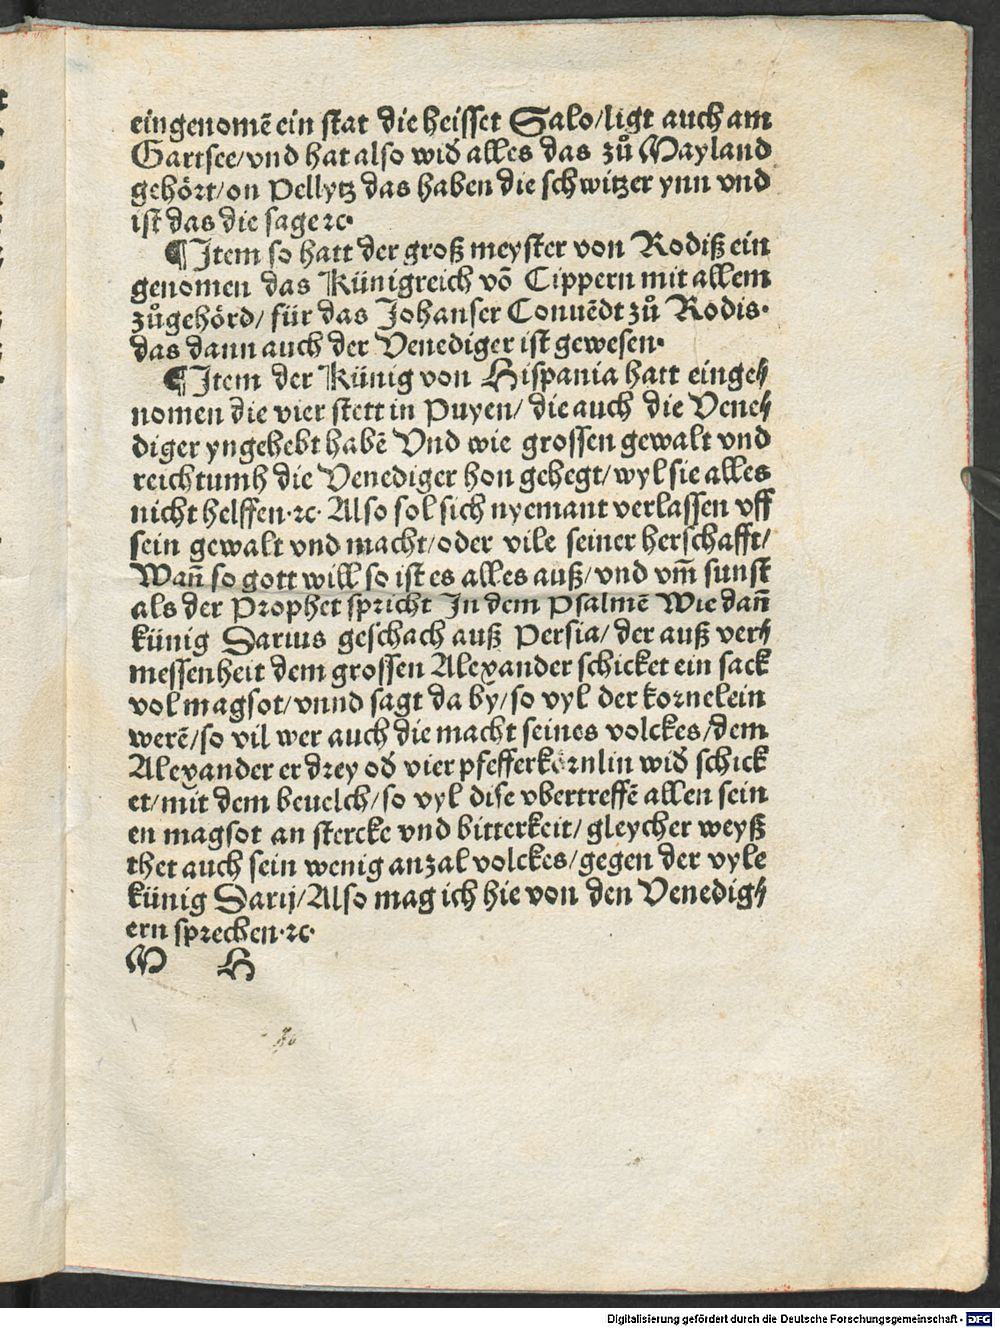 eingenomẽ ein stat die heisset Salo/ligt auch am
Gartsee/vnd hat also wið alles das zů Mayland
gehört/on Pellytz das haben die schwitzer ynn vnd
ist das die sage ⁊c·
¶Item so hatt der groß meyster von Rodiß ein
genomen das Künigreich võ Cippern mit allem
zůgehörd/ für das Johanser Conuẽdt zů Rodis·
das dann auch der Venediger ist gewesen·
¶Item der Künig von Hispania hatt einge⸗
nomen die vier stett in Puyen/ die auch die Vene⸗
diger yngehebt habẽ Vnd wie grossen gewalt vnd
reichtumh die Venediger hon gehegt/wyl sie alles
nicht helffen·⁊c· Also sol sich nyemant verlassen vff
sein gewalt vnd macht/oder vile seiner herschafft/
Wañ so gott will so ist es alles auß/vnd vm̃ sunst
als der Prophet spricht In dem Psalmẽ Wie dañ
künig Darius geschach auß Persia/der auß ver⸗
messenheit dem grossen Alexander schicket ein sack
vol magsot/vnnd sagt da bÿ/so vyl der kornelein
werẽ/so vil wer auch die macht seines volckes/dem
Alexander er drey oð vier pfefferkörnlin wið schick
et/mit dem beuelch/so vyl dise vbertreffẽ allen sein
en magsot an stercke vnd bitterkeit/gleycher weyß
thet auch sein wenig anzal volckes/gegen der vyle
künig Darij/Also mag ich hie von den Venedig⸗
ern sprechen·⁊c·
M H
Digitalisierung gefördert durch die Deutsche Forschungsgemeinschaft - DFG